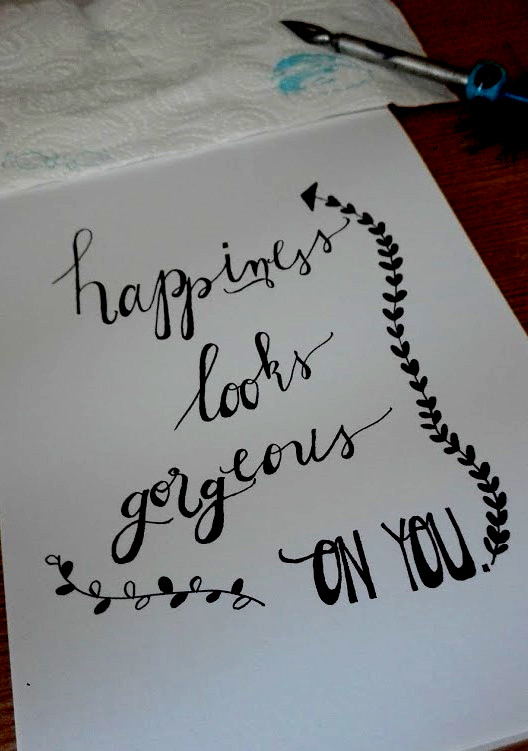 happiness
looks
gorgeous
ON YOU.